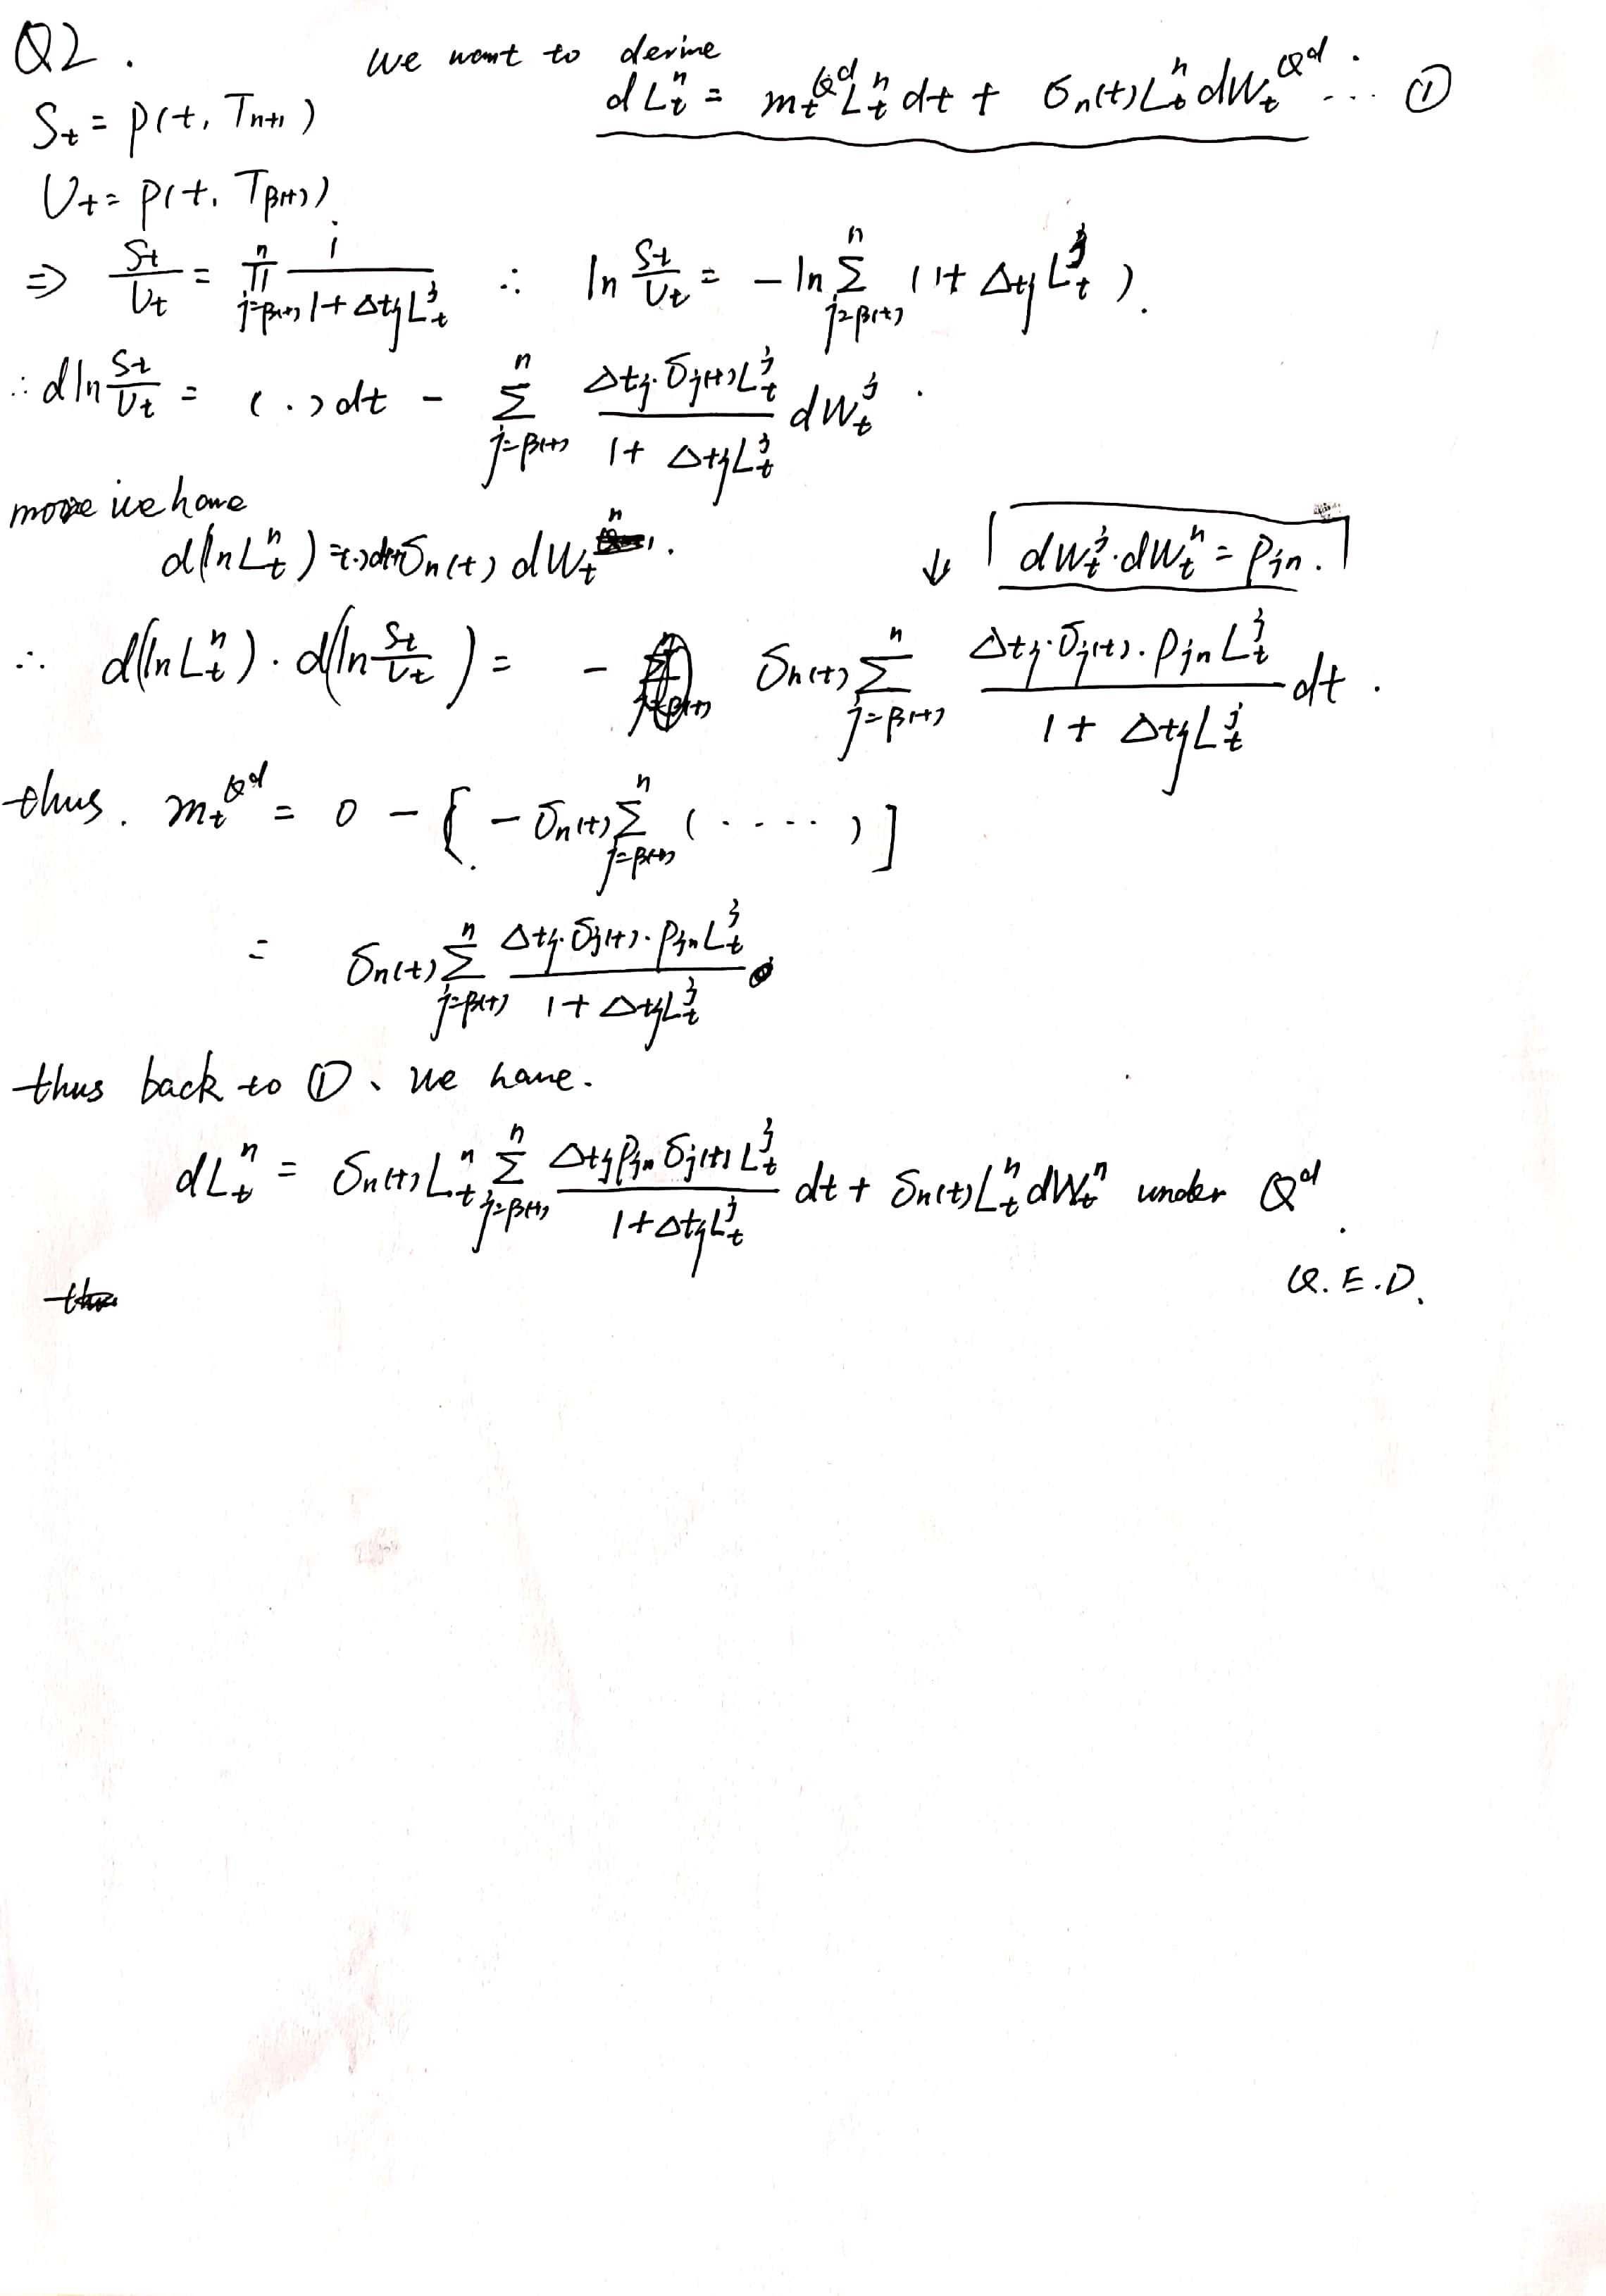 Q2.
we want to derive
dLₜⁿ = mₜ^{Q^d} Lₜⁿ dt + σₙ(t) Lₜⁿ dWₜ^{Q^d} ... ①
Sₜ = P(t, Tₙ₊₁)
Uₜ = P(t, T_{β(t)})
⇒ Sₜ/Uₜ = ∏_{j=β(t)}^{n} 1/(1 + Δtⱼ Lₜʲ) ∴ ln Sₜ/Uₜ = - ln ∑_{j=β(t)}^{n} (1 + Δtⱼ Lₜʲ).
∴ d ln Sₜ/Uₜ = (.) dt - ∑_{j=β(t)}^{n} (Δtⱼ · σⱼ(t) Lₜʲ)/(1 + Δtⱼ Lₜʲ) dWₜʲ.
more we have
d(ln Lₜⁿ) = (.) dt + σₙ(t) dWₜⁿ.
↓ dWₜʲ · dWₜⁿ = ρⱼₙ.
∴ d(ln Lₜⁿ) · d(ln Sₜ/Uₜ) = - σₙ(t) ∑_{j=β(t)}^{n} (Δtⱼ · σⱼ(t) · ρⱼₙ Lₜʲ)/(1 + Δtⱼ Lₜʲ) dt.
thus. mₜ^{Q^d} = 0 - [ - σₙ(t) ∑_{j=β(t)}^{n} (....) ]
= σₙ(t) ∑_{j=β(t)}^{n} (Δtⱼ · σⱼ(t) · ρⱼₙ Lₜʲ)/(1 + Δtⱼ Lₜʲ)
thus back to ①、we have.
dLₜⁿ = σₙ(t) Lₜⁿ ∑_{j=β(t)}^{n} (Δtⱼ ρⱼₙ σⱼ(t) Lₜʲ)/(1 + Δtⱼ Lₜʲ) dt + σₙ(t) Lₜⁿ dWₜⁿ under Q^d.
Q.E.D.